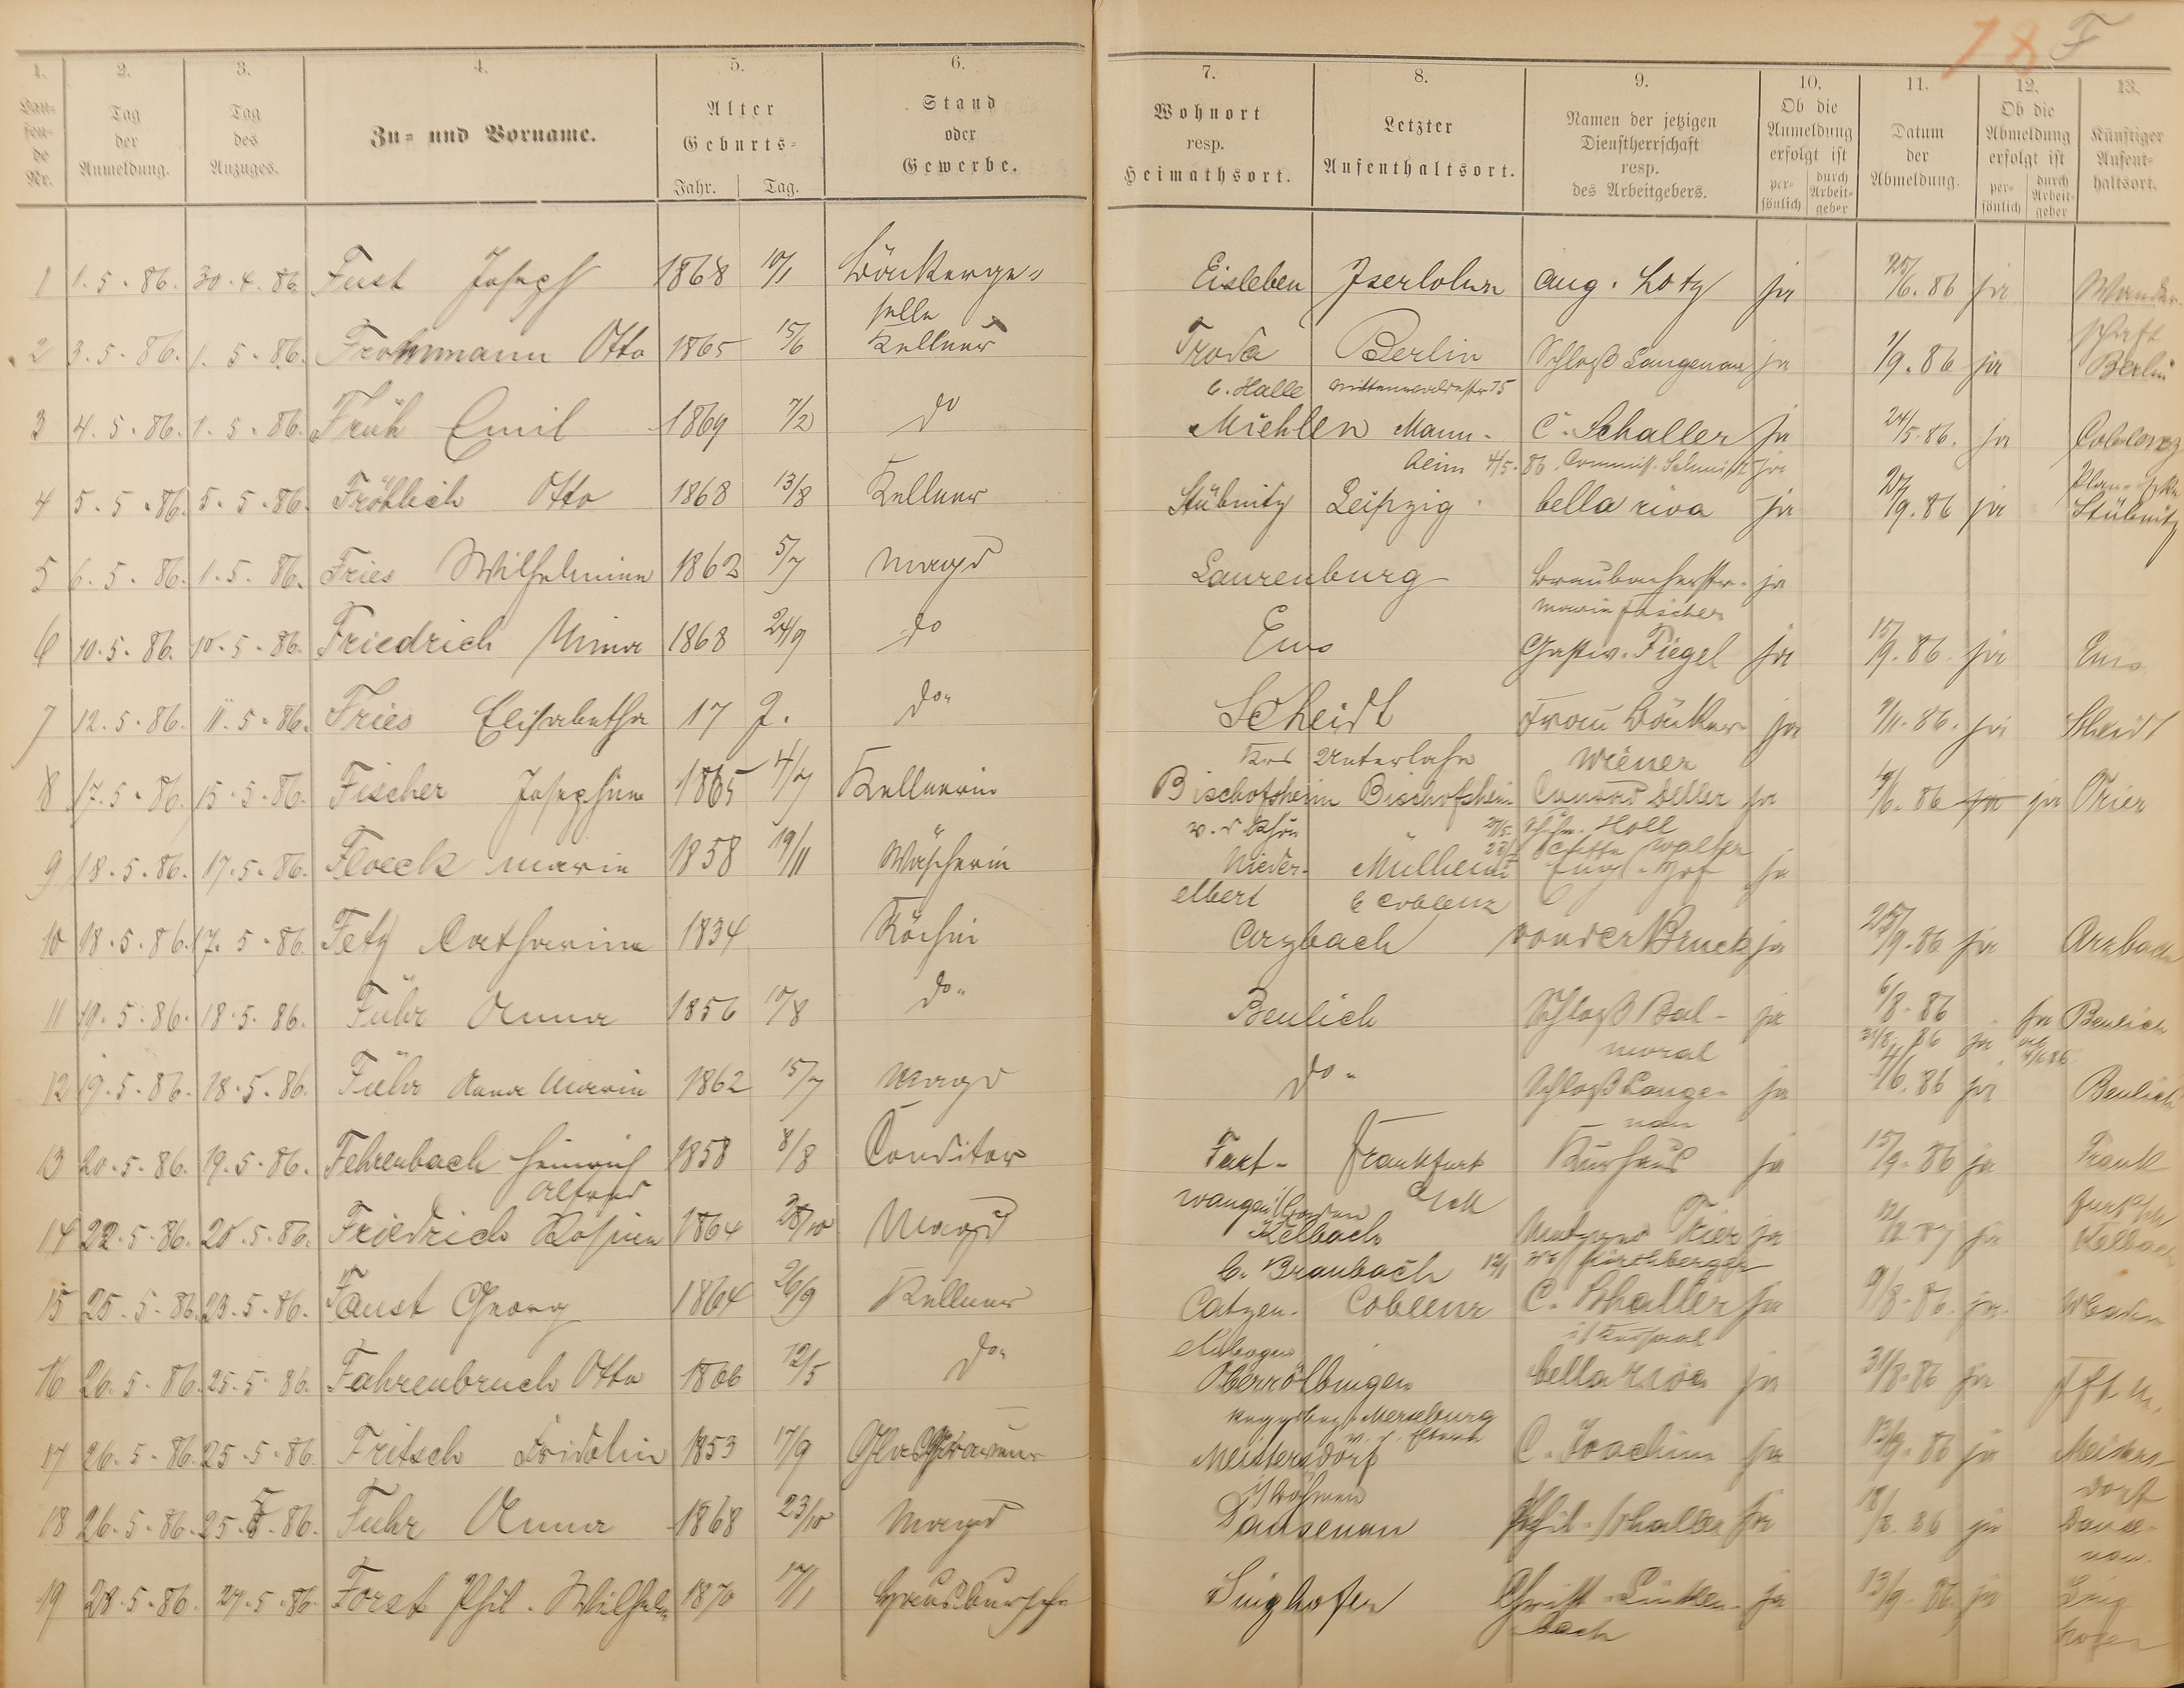 18 F
1. 2. 3. 4. 5. 6. 7. 8. 9. 10. 11. 12. 13.
Lau-fen-de Nr. Tag der Anmeldung. Tag des Anzuges. Zu- und Vorname. Alter Geburts- Jahr. Tag. Stand oder Gewerbe. Wohnort resp. Heimathsort. Letzter Aufenthaltsort. Namen der jetzigen Dienstherrschaft resp. des Arbeitgebers. Ob die Anmeldung erfolgt ist per-sönlich durch Arbeit-geber Datum der Abmeldung. Ob die Abmeldung erfolgt ist per-sönlich durch Arbeit-geber Künftiger Aufent-haltsort.
1 1.5.86. 30.4.86 Fust Joseph 1868 10/1 Bäckerge- Eisleben Iserlohn Aug. Lotz ja 25/6.86 ja Wander-
selle schaft
2 3.5.86. 1.5.86. Frohnmann Otto 1865 15/6 Kellner Troda Berlin Schloß Langenau ja 1/9.86 ja Berlin
b. Halle
3 4.5.86. 1.5.86. Früh Emil 1869 7/2 do Miehlen Mann- C. Schaller ja 24/5.86. ja Coblenz
heim 4/5.86. ja
4 5.5.86. 5.5.86. Fröhlich Otto 1868 13/8 Kellner Stübnitz Leipzig bella riva ja 27/9.86 ja Stübnitz
5 6.5.86. 1.5.86. Fries Wilhelmine 1862 5/7 Magd Laurenburg Braubacherstr. ja
Marie Fischer
6 10.5.86. 10.5.86. Friedrich Mina 1868 24/9 do Ems Gastw. Fiegel ja 15/9.86. ja Ems
7 12.5.86. 11.5.86. Fries Elisabetha 17 J. do. Scheidt Frau Bäcker ja 9/11.86. ja Scheidt
Krs Unterlahn Wiener
8 17.5.86. 15.5.86. Fischer Josephine 1865 4/7 Kellnerin Bischofsheim Bischofsheim Conrad Deller ja 9/6.86 ja ja Trier
v. d. Rhön Holl
9 18.5.86. 17.5.86. Floeck Marie 1858 19/11 Wäscherin Nieder- Mülheim Engl. Hof ja
elbert b Coblenz
10 18.5.86. 17.5.86. Fetz Catharina 1834 Köchin Arzbach von der Bruck ja 25/9.86 ja Arzbach
11 19.5.86. 18.5.86. Führ Anna 1856 10/8 do. Beulich Schloß Bal- ja 6/8.86 ja Beulich
moral 31/8.86 ja
12 19.5.86. 18.5.86. Führ Anna Maria 1862 15/7 Magd do. Schloß Lange- ja 4/6.86 ja Beulich
nau
13 20.5.86. 19.5.86. Fehrenbach Heinrich 1858 8/8 Conditor Furt- Frankfurt Kurhaus ja 15/9.86 ja Frank
Alfred wangen i/Baden furt
14 22.5.86. 20.5.86. Friedrich Rosina 1864 28/10 Magd Kelbach Metzger Trier ja 12/2 87 ja Kelbach
b. Braubach 12/1 We Hirschberger
15 25.5.86. 23.5.86. Faust Georg 1864 26/9 Kellner Catzen- Coblenz C. Schaller ja 9/8.86. ja
elnbogen i/Kursaal
16 26.5.86. 25.5.86. Fahrenbruch Otto 1866 12/5 do. Oberröblingen bella riva ja 31/8.86 ja Fft. M.
Merseburg
17 26.5.86. 25.5.86. Fritsch Fridolin 1853 17/9 Glasgraveur Meistersdorf C. Joachim ja 13/9.86 ja Meisters-
i/Böhmen dorf
18 26.5.86. 25.5.86. Fuhr Anna 1868 23/10 Magd Dausenau Phil. Schaller ja 18/8.86 ja Dause-
nau.
19 28.5.86. 27.5.86. Forst Phil. Wilhelm 1870 17/1 Hausbursche Singhofen Christ. Linken- ja 13/9.86. ja Sing
bach hofen